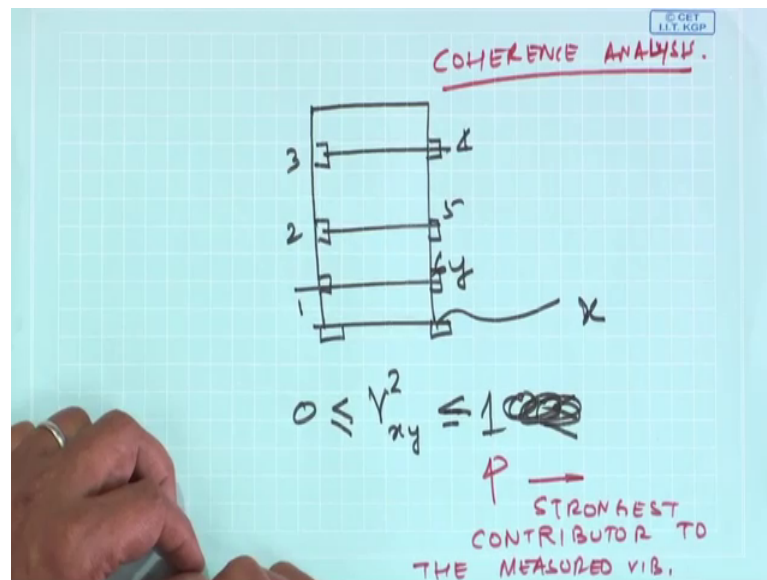 © CET
I.I.T. KGP
COHERENCE ANALYSIS.
3
4
2
5
y
1
x
0 ≤ γ²xy ≤ 1
STRONGEST
CONTRIBUTOR TO
THE MEASURED VIB.